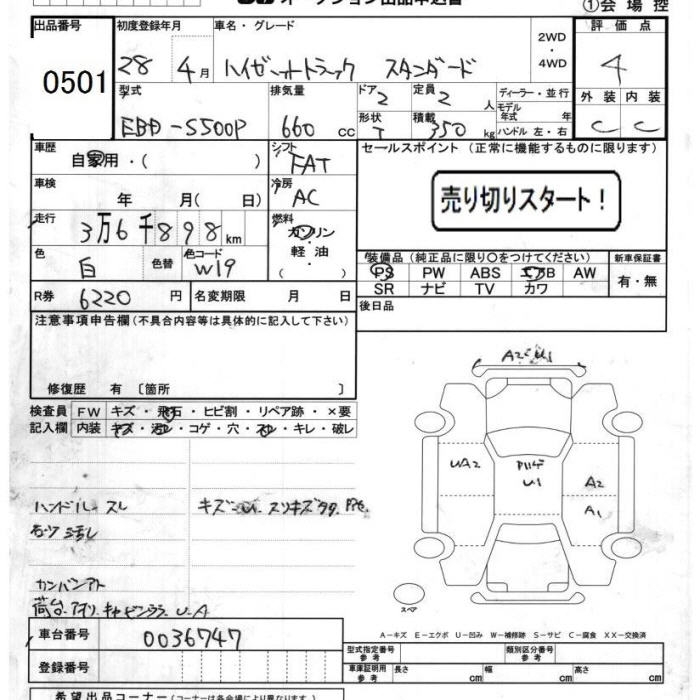 オークション出品申込書 ①会場控
出品番号 初度登録年月 車名・グレード 2WD・4WD 評価点
0501 28 4月 ハイゼットトラック スタンダード 4
型式 排気量 ドア 2 定員 2 人 ディーラー・並行 外装 内装
EBD-S500P 660 cc 形状 T 積載 350 kg モデル年式 年 ハンドル 左・右 C C
車歴 自家用・( ) シフト FAT セールスポイント (正常に機能するものに限ります)
車検 年 月( 日) 冷房 AC 売り切りスタート!
走行 3万6千898km 燃料 ガソリン 軽油 ( )
色 白 色替 色コード W19 装備品 (純正品に限り○をつけてください) 新車保証書
PS PW ABS エアB AW 有・無
SR ナビ TV カワ
R券 6220円 名変期限 月 日 後日品
注意事項申告欄 (不具合内容等は具体的に記入して下さい)
修復歴 有 〔箇所 〕
検査員 FW キズ・飛石・ヒビ割・リペア跡・×要
記入欄 内装 キズ・汚レ・コゲ・穴・スレ・キレ・破レ
A2 U1
UA2 U1 A2
A1
ハンドル スレ キズ
汚レ
カンバンアト
荷台 アオリ キャビンウラ U-A
スペア
A-キズ E-エクボ U-凹み W-補修跡 S-サビ C-腐食 XX-交換済
車台番号 0036747 型式指定番号 参考 類別区分番号 参考
登録番号 車庫証明用 参考 長さ cm 幅 cm 高さ cm
希望出品コーナー (コーナーは各会場により異なります)